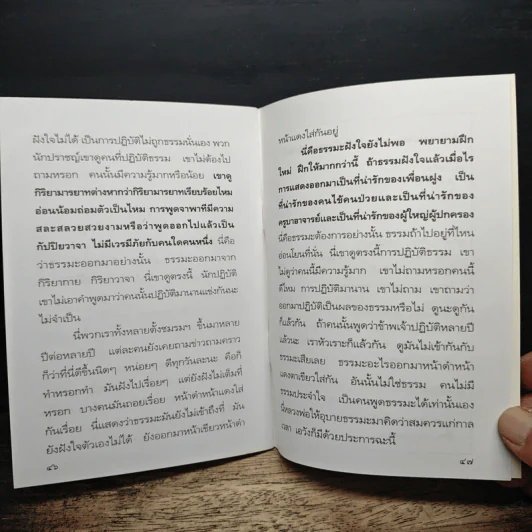 ฝังใจไม่ได้ เป็นการปฏิบัติไม่ถูกธรรมนั่นเอง พวก
นักปราชญ์เขาดูคนที่ปฏิบัติธรรม เขาไม่ต้องไป
ถามหรอก คนนั้นมีความรู้มากหรือน้อย เขาดู
กิริยามารยาทต่างหากว่ากิริยามารยาทเรียบร้อยไหม
อ่อนน้อมถ่อมตัวเป็นไหม การพูดจาพาทีมีความ
สละสลวยสวยงามหรือว่าพูดออกไปแล้วเป็น
กัปปิยวาจา ไม่มีเวรมีภัยกับคนใดคนหนึ่ง นี่คือ
ว่าธรรมะออกมาอย่างนั้น ธรรมะออกมาจาก
กิริยากาย กิริยาวาจา นี่เขาดูตรงนี้ นักปฏิบัติ
เขาไม่เอาคำพูดมาว่าคนนั้นปฏิบัติมานานแข่งกันนะ
ไม่จำเป็น
นี่พวกเราทั้งหลายตั้งชมรมฯ ขึ้นมาหลาย
ปีต่อหลายปี แต่ละคนยังเคยถามข่าวถามคราว
ก็ว่าที่นี่ดีขึ้นนิดๆ หน่อยๆ ดีทุกวันละนะ คือก็
ทำหรอกทำ มันฝังไปเรื่อยๆ แต่ยังฝังไม่เต็มที่
หรอก บางคนมันถอยเรื่อย หน้าดำหน้าแดงใส่
กันเรื่อย นี่แสดงว่าธรรมะมันยังไม่เข้าถึงที่ มัน
ยังฝังใจตัวเองไม่ได้ ยังออกมาหน้าเขียวหน้าดำ
๔๖
หน้าแดงใส่กันอยู่
นี่คือธรรมะฝังใจยังไม่พอ พยายามฝึก
ใหม่ ฝึกให้มากกว่านี้ ถ้าธรรมฝังใจแล้วเมื่อไร
การแสดงออกมาเป็นที่น่ารักของเพื่อนฝูง เป็น
ที่น่ารักของคนไข้คนป่วยและเป็นที่น่ารักของ
ครูบาอาจารย์และเป็นที่น่ารักของผู้ใหญ่ผู้ปกครอง
นี่คือธรรมะต้องการอย่างนั้น ธรรมถ้าไปอยู่ที่ไหน
อ่อนโยนที่นั่น นี่เขาดูตรงนี้การปฏิบัติธรรม เขา
ไม่ดูว่าคนนี้มีความรู้มาก เขาไม่ถามหรอกคนนี้
ดีไหม การปฏิบัติมานาน เขาไม่ถาม เขาถามว่า
ออกมาปฏิบัติเป็นผลของธรรมหรือไม่ ดูนะดูกัน
ก็แล้วกัน ถ้าคนนั้นพูดว่าข้าพเจ้าปฏิบัติหลายปี
แล้วนะ เราหัวเราะก็แล้วกัน ดูมันไม่เข้ากันกับ
ธรรมะเสียเลย ธรรมะอะไรออกมาหน้าดำหน้า
แดงตาเขียวใส่กัน อันนั้นไม่ใช่ธรรม คนไม่มี
ธรรมประจำใจ เป็นคนพูดธรรมะได้เท่านั้นเอง
นี่หลวงพ่อให้อุบายธรรมะมาคิดว่าสมควรแก่กาล
เวลา เอวังก็มีด้วยประการฉะนี้
๔๗